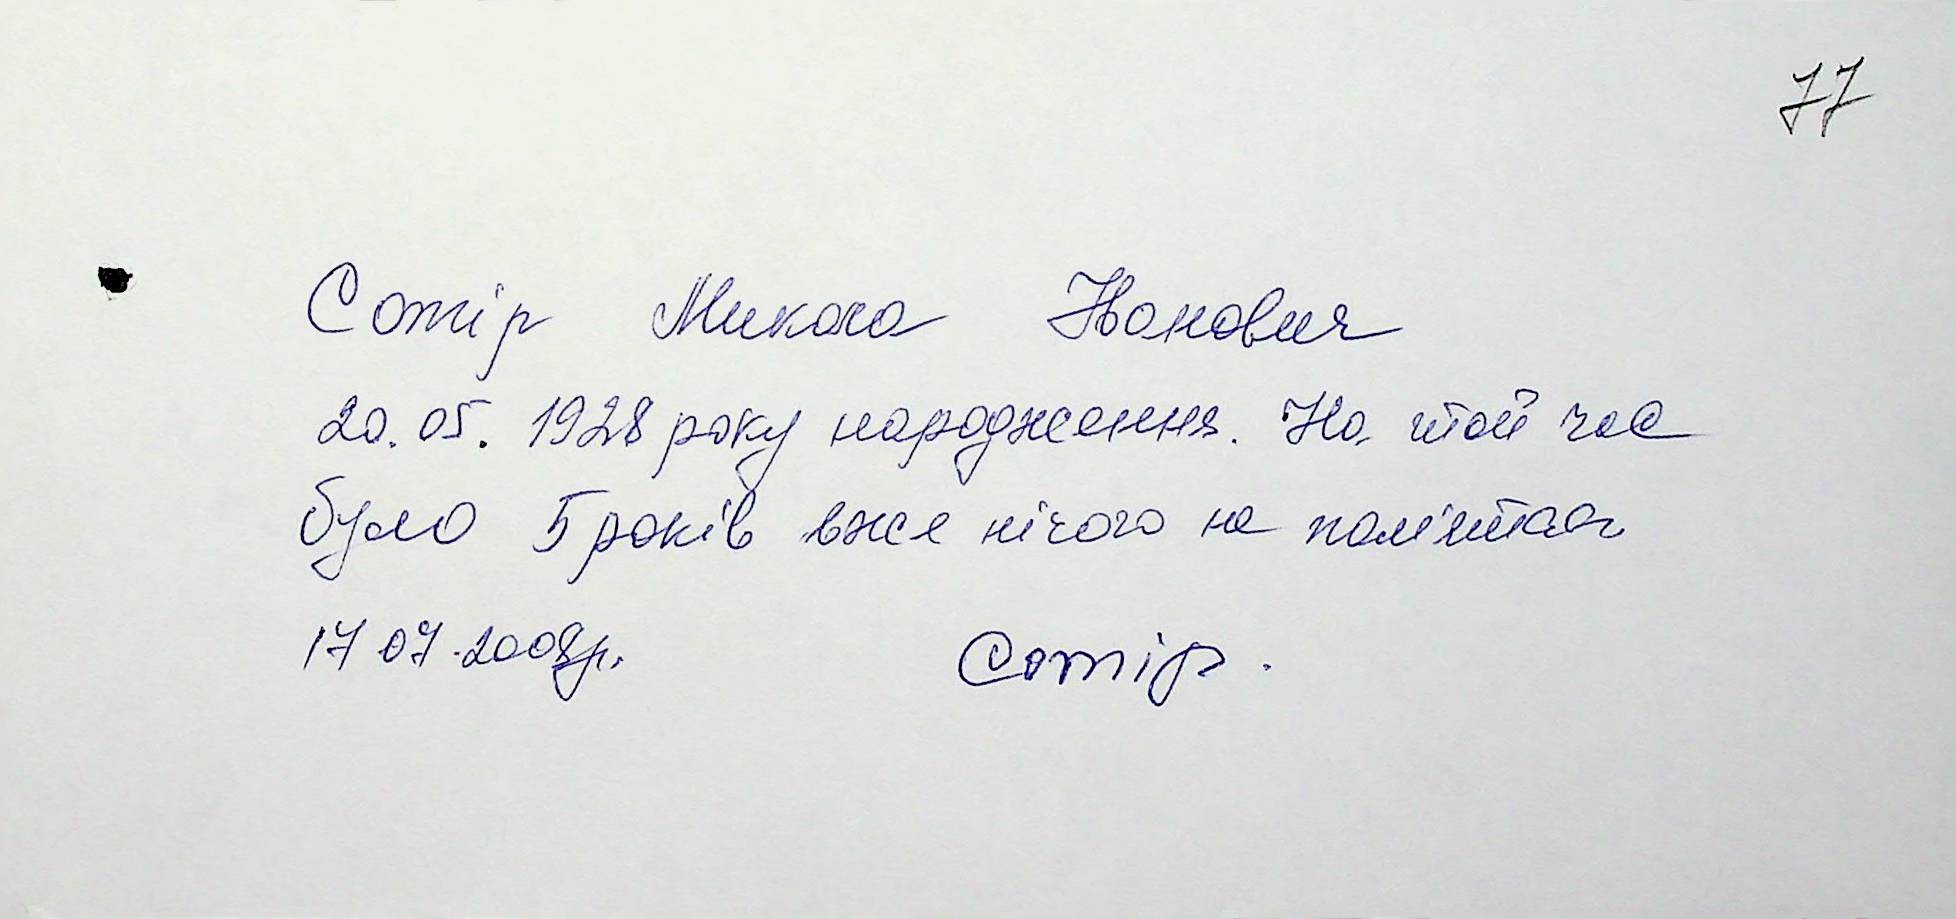 77
Сотір Микола Іванович
20.05.1928 року народження. На той час
було 5 років вже нічого не пам'ятає
17 07.2008р.
Сотір.